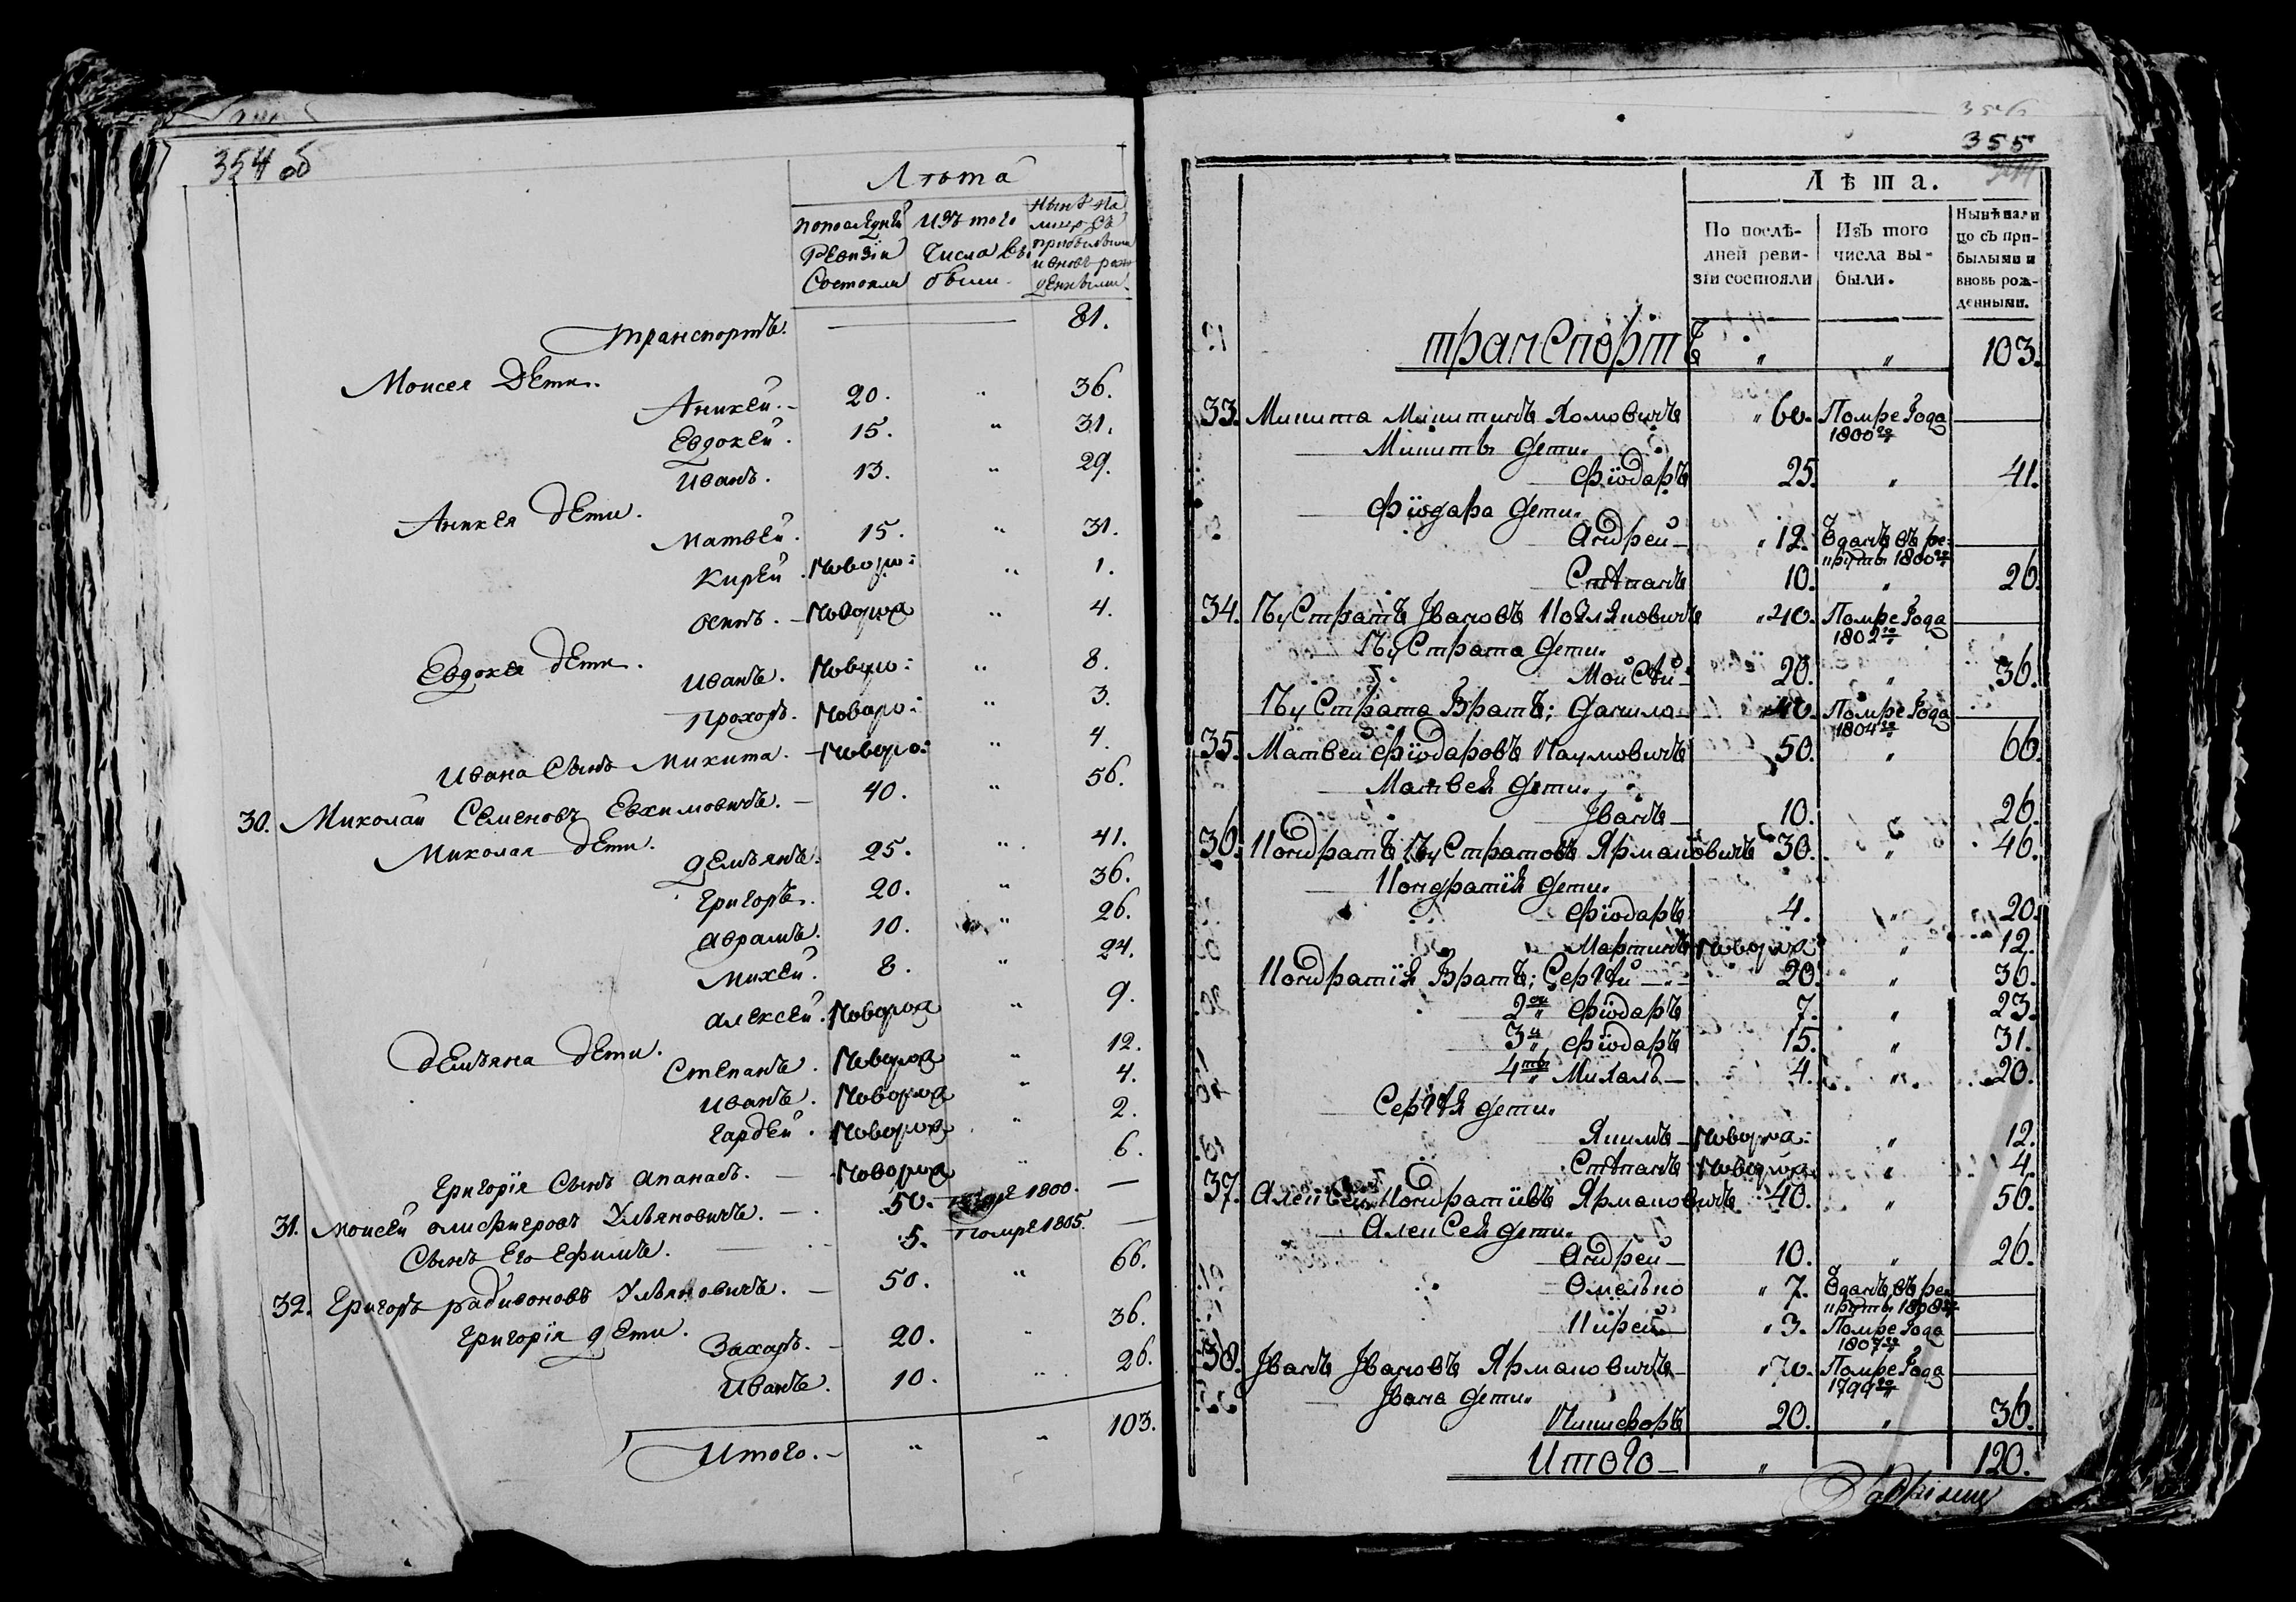 354 об
Лѣта
попоследней Изъ того Нынѣ на
Ревизiи числа вы лицо съ
Состояли были прибылыми
и вновь рож
денными.
транспортъ. 81.
Моисея Дети.
Аникей. 20. „ 36.
Евдокей. 15. „ 31.
Иванъ. 13. „ 29.
Аникея дети.
Матвей. 15. „ 31.
Кирей. Новоро: „ 1.
Осипъ.Новорож „ 4.
Евдокея дети.
Иванъ. Новоро: „ 8.
Прохоръ. Новоро: „ 3.
Ивана Сынъ Микита. Новоро: „ 4.
30. Миколай Семеновъ Евхимовичъ. 40. „ 56.
Миколая дети.
Демьянъ. 25. „ 41.
Григоръ. 20. „ 36.
Аврамъ. 10. „ 26.
Михей. 8. „ 24.
Алексей.Новорож „ 9.
Демьяна дети.
Степанъ. Новорож „ 12.
Иванъ. Новорож „ 4.
Гардей. Новорож „ 2.
Григорiя Сынъ Апанасъ. Новорож „ 6.
31. Моисей Олисфировъ Ульяновичъ. 50. Помре 1800. —
Сынъ Его Ефимъ. 5. Помре 1805. —
32. Григоръ радивоновъ Ульяновичъ. 50. „ 66.
Григорiя дети.
Захаръ. 20. „ 36.
Иванъ. 10. „ 26.
Итого. „ „ 103.
355
Лѣта.
По послѣ- Изъ того Нынѣ нали
дней реви- числа вы- цо съ при-
зiи состояли были. былыми и
вновь рож-
денными.
транспортъ „ „ 103.
33. Микита Микитинъ Хомовичъ „ 60. Помре Года —
1800го
Микиты дети.
Фiодаръ 25. „ 41.
Фiодара дети.
Андрей „ 12. Вданъ въ ре- —
круты 1800го
Степанъ 10. „ 26.
34. Кустратъ Ивановъ Касьяновичъ „ 40. Помре Года —
1802го
Кустрата дети.
Мойсей 20. „ 36.
Кустрата Братъ; Данило „ 40. Помре Года —
1804го
35. Матвей Фiодаровъ Наумовичъ 50. „ 66.
Матвея дети.
Иванъ 10. „ 26.
36. Кондратъ Кустратовъ Ярмаковичъ 30. „ 46.
Кондратiя дети.
Фiодаръ 4. „ 20.
Мартинъ Новорож „ 12.
Кондратiя Братъ; Сергѣй 20. „ 36.
2ой Фiодаръ 7. „ 23.
3й Фiодаръ 15. „ 31.
4ты Михалъ 4. „ 20.
Сергѣя дети.
Якимъ Новорож: „ 12.
Степанъ Новорож „ 4.
37. Алексей Кондратiевъ Ярмаковичъ 40. „ 56.
Алексея дети.
Андрей 10. „ 26.
Омелько „ 7. Вданъ въ ре- —
круты 1808го
Кирей „ 3. Помре Года —
1807го
38. Иванъ Ивановъ Ярмаковичъ „ 70. Помре Года —
1799го
Ивана дети.
Никифоръ 20. „ 36.
Итого „ 120.